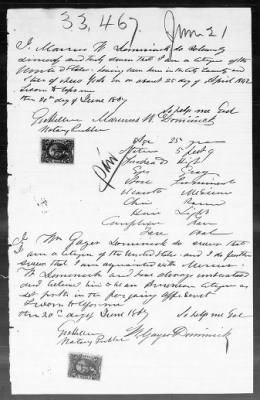 33,467 June 21
I. Marcus W. Dominick do solemnly
sincerely and truly swear that I am a citizen of the
United States having been born in the City County and
State of New York on or about 25 day of April 1842
Sworn to before me
this 20th day of June 1867 So help me God
Marinus W. Dominick
Notary Public
Age 25 Years
Stature 5 feet
Forehead High
Eyes Gray
Nose Prominent
Mouth Medium
Chin Round
Hair Light
Complexion Fair
Face Oval
I Wm Gayer Dominick do swear that
I am a citizen of the United States and I do further
swear that I am acquainted with Marinus
W. Dominick and have always understood
and believe him to be an American Citizen as
set forth in the foregoing affidavit
Sworn to before me
this 20th day of June 1867 So help me God
W. Gayer Dominick
Notary Public